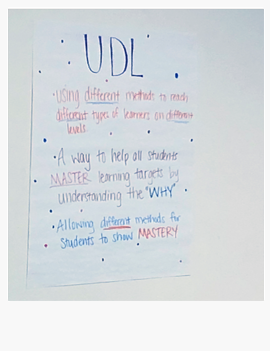 UDL
• Using different methods to reach
different types of learners on different
levels
• A way to help all students
MASTER learning targets by
understanding the "WHY"
• Allowing different methods for
students to show MASTERY